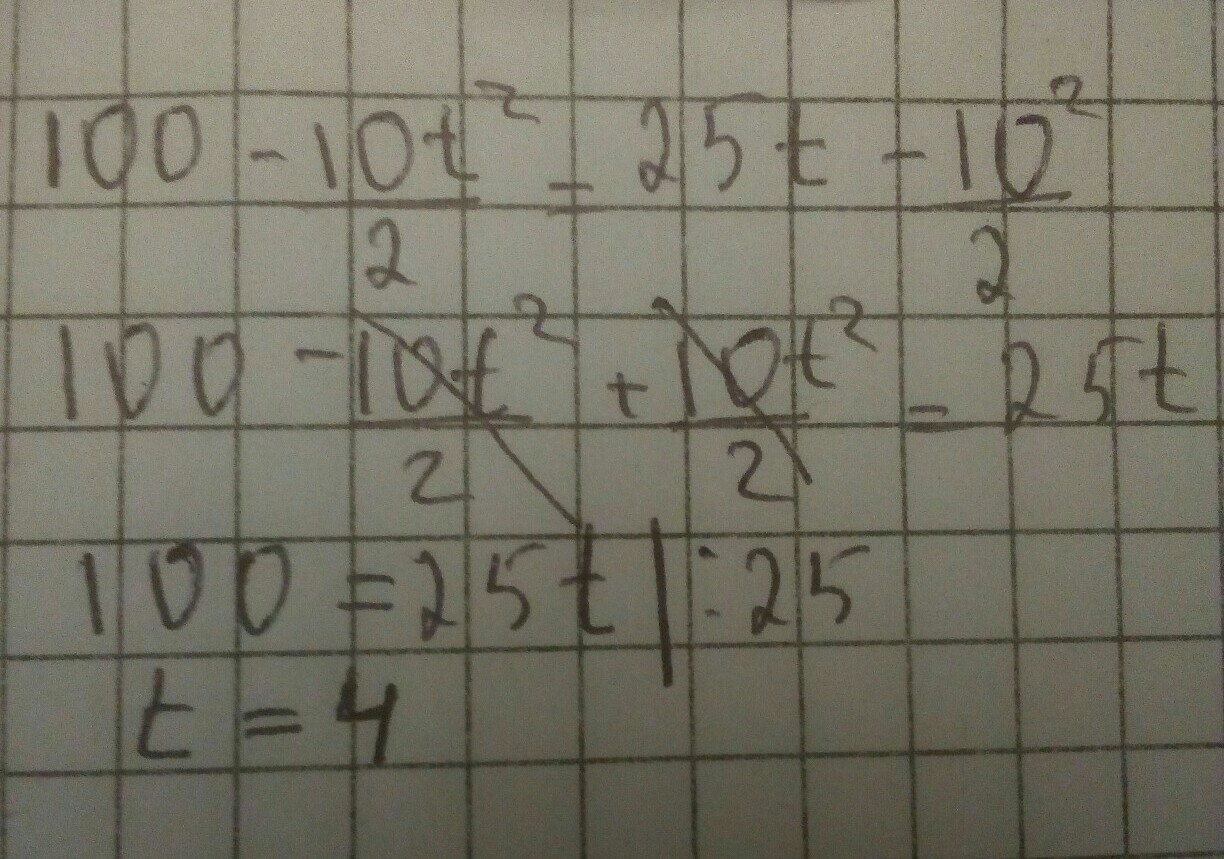 100 - 10t²/2 = 25t - 10²/2
100 - 10t²/2 + 10t²/2 = 25t
100 = 25t | : 25
t = 4